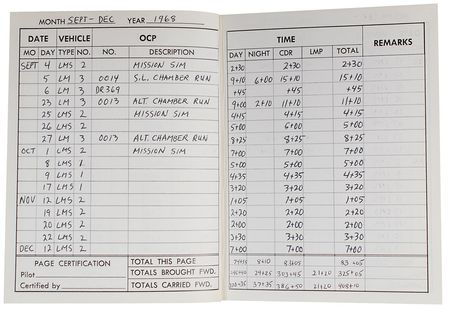 MONTH SEPT-DEC YEAR 1968
DATE VEHICLE OCP TIME REMARKS
MO DAY TYPE NO. NO. DESCRIPTION DAY NIGHT CDR LMP TOTAL
SEPT 4 LMS 2 MISSION SIM 2+30 2+30 2+30
5 LM 3 0014 S.L. CHAMBER RUN 9+10 6+00 15+10 15+10
6 LM 3 DR369 +45 +45 +45
23 LM 3 0013 ALT CHAMBER RUN 9+00 2+10 11+10 11+10
25 LMS 2 MISSION SIM 4+15 4+15 4+15
26 LMS 2 5+00 6+00
27 LM 3 0013 ALT CHAMBER RUN 8+25 8+25 8+25
OCT 1 LMS 2 MISSION SIM 7+00 7+00 7+00
8 LMS 1 5+00 5+00 5+00
9 LMS 1 4+35 4+35 4+35
17 LMS 1 3+20 3+20 3+20
NOV 12 LMS 2 1+05 1+05 1+05
19 LMS 2 2+20 2+20
20 LMS 2 7+00 7+00
22 LMS 2 3+30 3+30 3+30
DEC 12 LMS 2 7+00 7+00 7+00
PAGE CERTIFICATION TOTAL THIS PAGE 8+10 83+05 83+05
Pilot TOTALS BROUGHT FWD. 29+25 303+45 21+20 325+05
Certified by TOTALS CARRIED FWD. 37+35 386+50 21+20 408+10